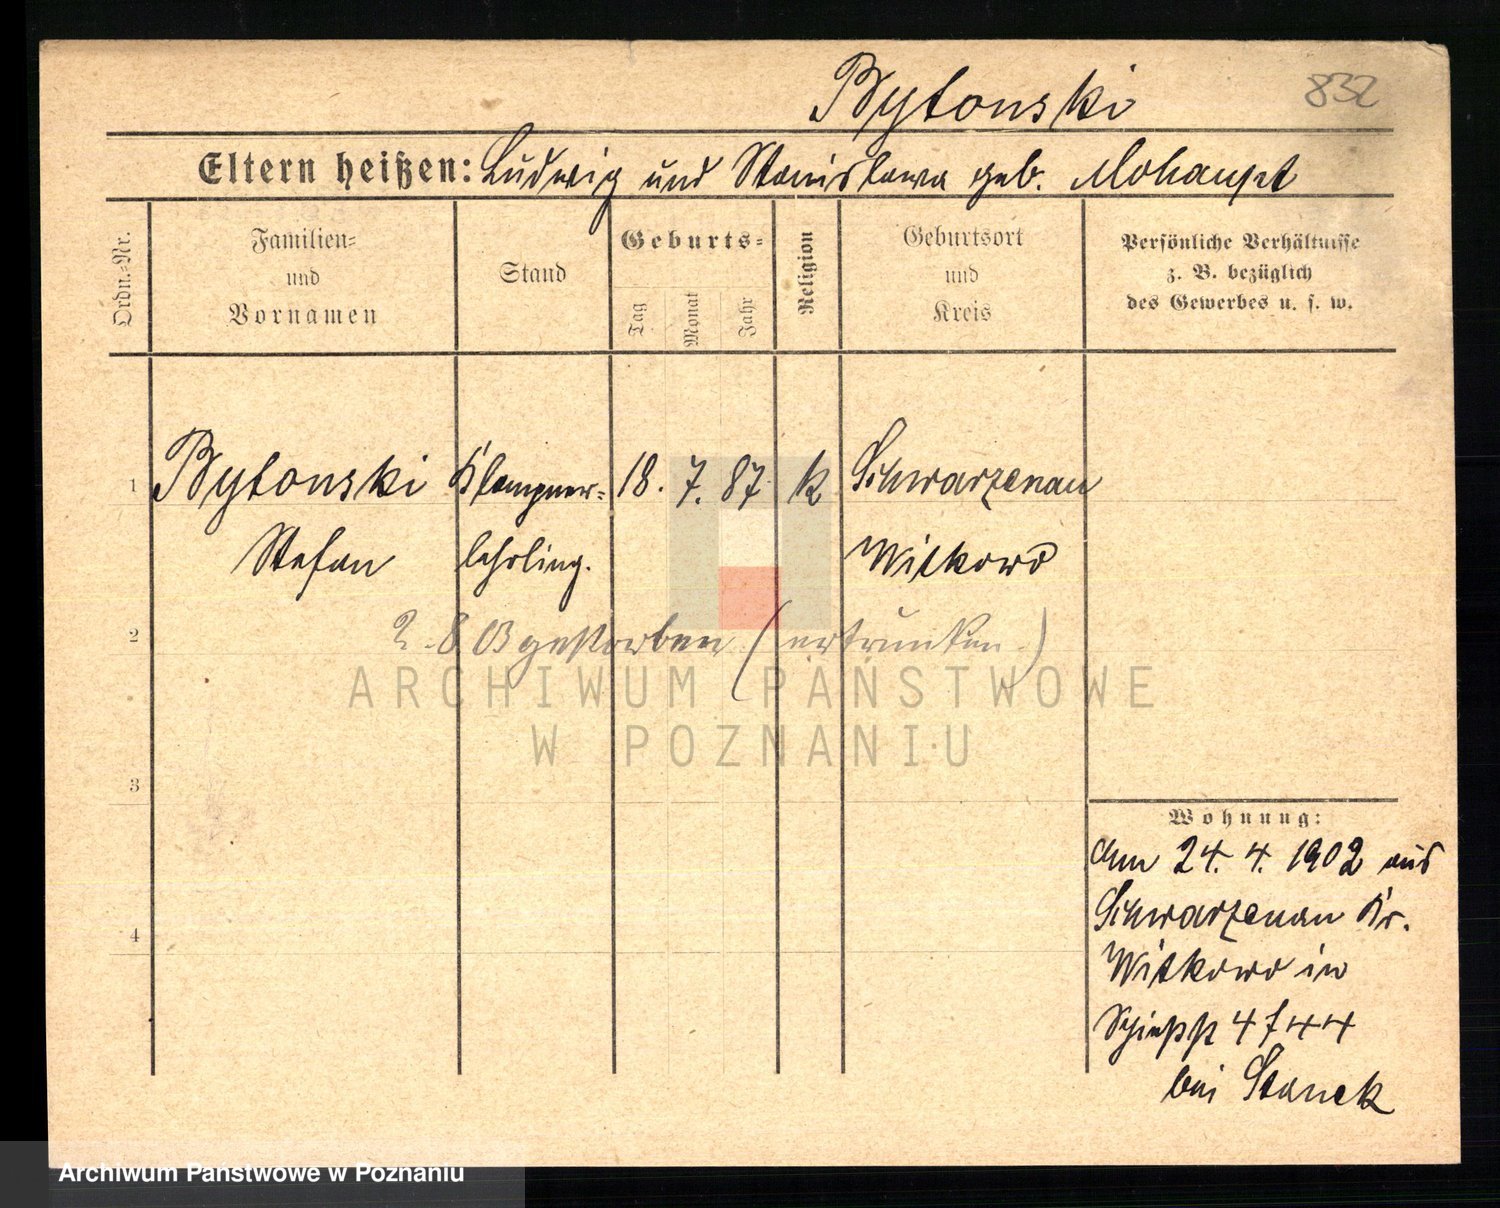 Bytonski 832
Eltern heißen: Ludwig und Stanislawa geb. Mohaupt
Ordn.-Nr.
Familien-
und
Vornamen
Stand
Geburts-
Tag
Monat
Jahr
Religion
Geburtsort
und
Kreis
Persönliche Verhältnisse
z. B. bezüglich
des Gewerbes u. s. w.
1 Bytonski Klempner- 18. 7. 87 k Schwarzenau
Stefan lehrling. Witkowo
2 2. 8. 03 gestorben (ertrunken)
ARCHIWUM PAŃSTWOWE
W POZNANIU
3
Wohnung:
Am 24. 4. 1902 aus
4 Schwarzenau Kr.
Witkowo in
bei Stanek
Archiwum Państwowe w Poznaniu